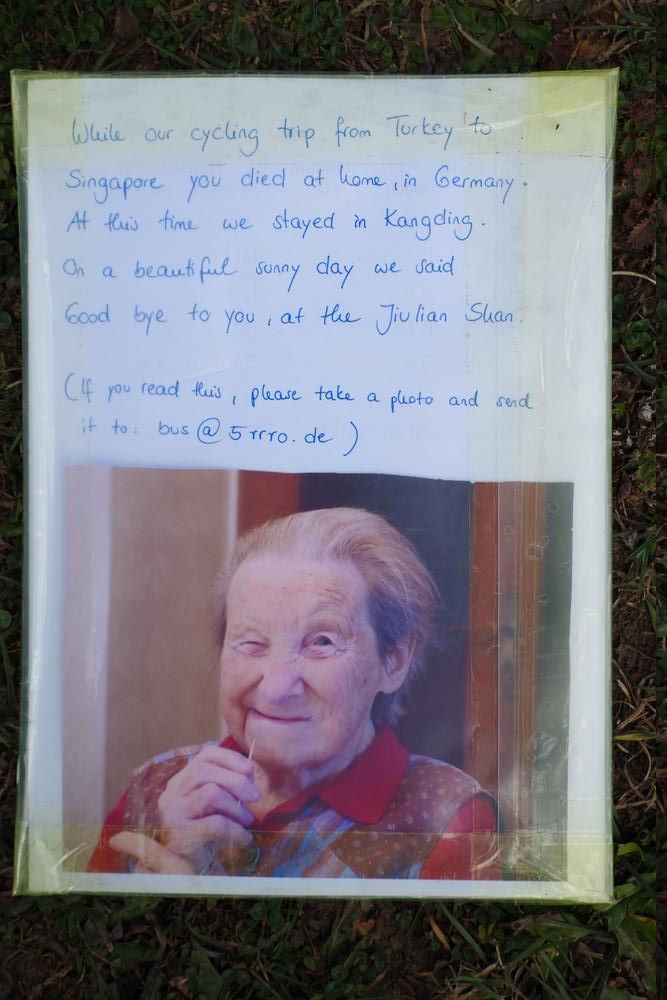 While our cycling trip from Turkey to
Singapore you died at home, in Germany.
At this time we stayed in Kangding.
On a beautiful sunny day we said
Good bye to you, at the Jiulian Shan.
(If you read this, please take a photo and send
it to: bus@5rrro.de)